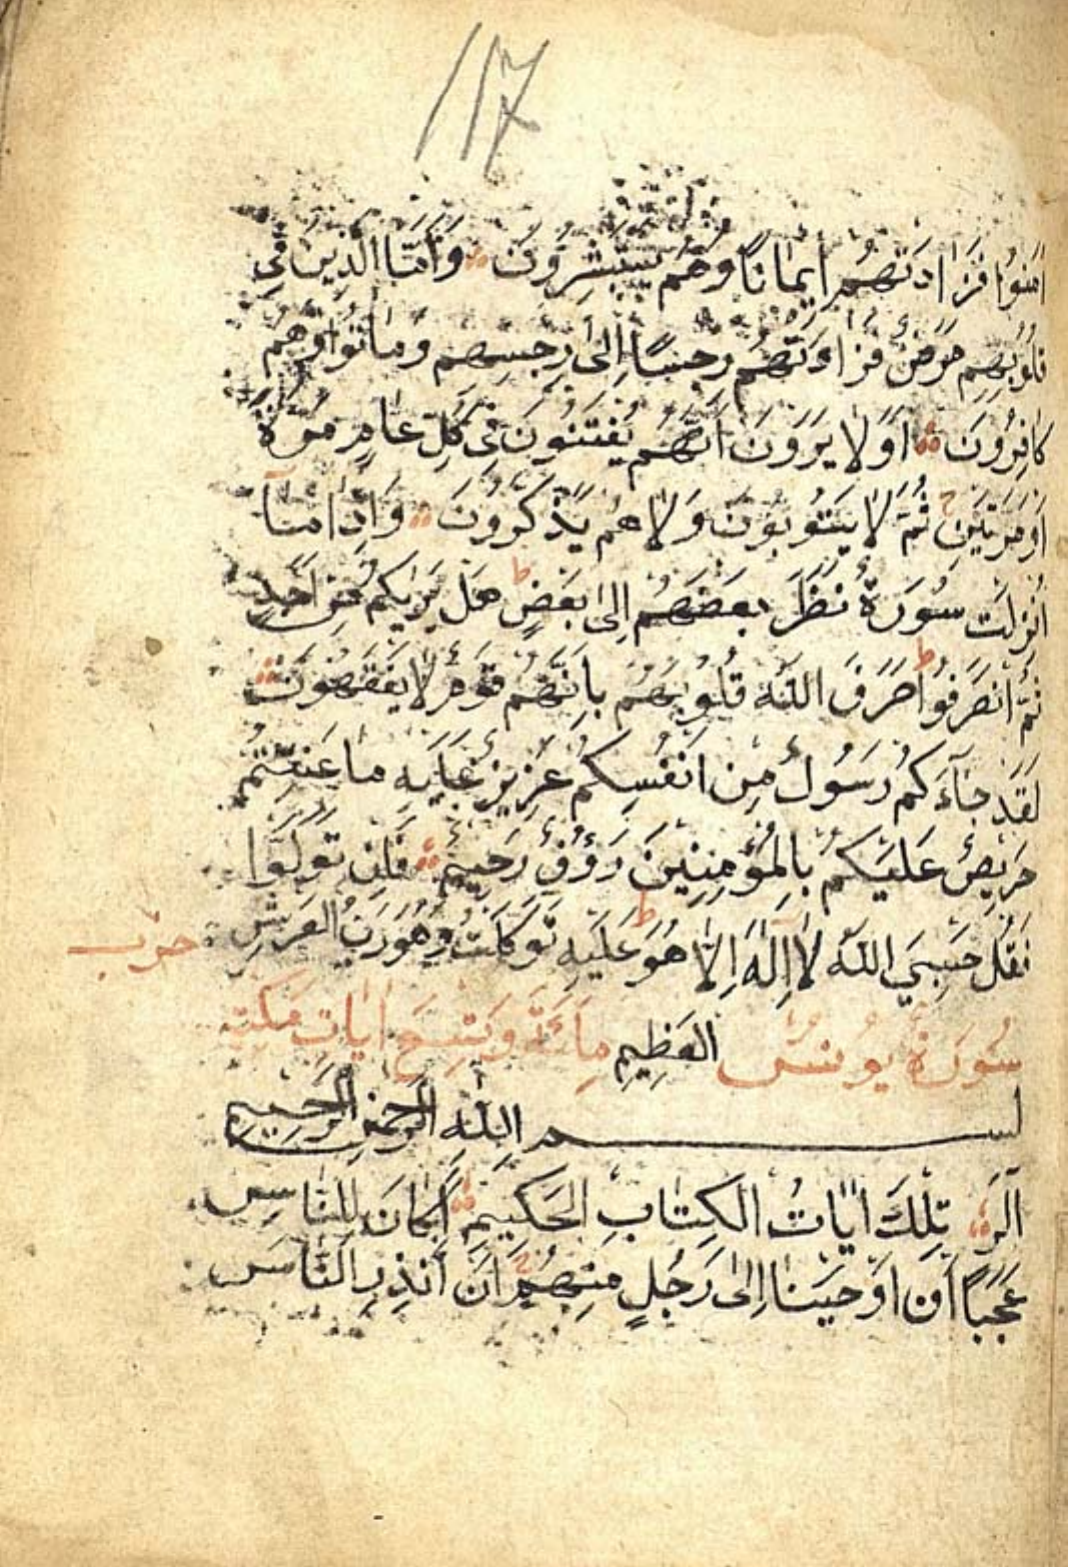 117
اٰمَنُوا فَزَادَتْهُمْ اٖيمَانًا وَهُمْ يَسْتَبْشِرُونَ وَاَمَّا الَّذِينَ فِى
قُلُوبِهِمْ مَرَضٌ فَزَادَتْهُمْ رِجْسًا اِلٰى رِجْسِهِمْ وَمَاتُوا وَهُمْ
كَافِرُونَ اَوَلَا يَرَوْنَ اَنَّهُمْ يُفْتَنُونَ فِى كُلِّ عَامٍ مَرَّةً
اَوْ مَرَّتَيْنِ ثُمَّ لَا يَتُوبُونَ وَلَا هُمْ يَذَّكَّرُونَ وَاِذَا مَآ
اُنْزِلَتْ سُورَةٌ نَظَرَ بَعْضُهُمْ اِلٰى بَعْضٍ ط هَلْ يَرٰيكُمْ مِنْ اَحَدٍ
ثُمَّ انْصَرَفُوا ط صَرَفَ اللّٰهُ قُلُوبَهُمْ بِاَنَّهُمْ قَوْمٌ لَا يَفْقَهُونَ
لَقَدْ جَآءَكُمْ رَسُولٌ مِنْ اَنْفُسِكُمْ عَزِيزٌ عَلَيْهِ مَا عَنِتُّمْ
حَرِيصٌ عَلَيْكُمْ بِالْمُؤْمِنِينَ رَؤُفٌ رَحِيمٌ فَاِنْ تَوَلَّوْا
فَقُلْ حَسْبِيَ اللّٰهُ لَا اِلٰهَ اِلَّا هُوَ ط عَلَيْهِ تَوَكَّلْتُ وَهُوَ رَبُّ الْعَرْشِ
حزب
سُورَةُ يُونُسَ الْعَظِيمِ مِائَةٌ وَتِسْعُ اٰيَاتٍ مَكِّيَّة
بسم اللّٰهِ الرَّحْمٰنِ الرَّحِيمِ
آلر تِلْكَ اٰيَاتُ الْكِتَابِ الْحَكِيمِ اَكَانَ لِلنَّاسِ
عَجَبًا اَنْ اَوْحَيْنَا اِلٰى رَجُلٍ مِنْهُمْ اَنْ اَنْذِرِ النَّاسَ